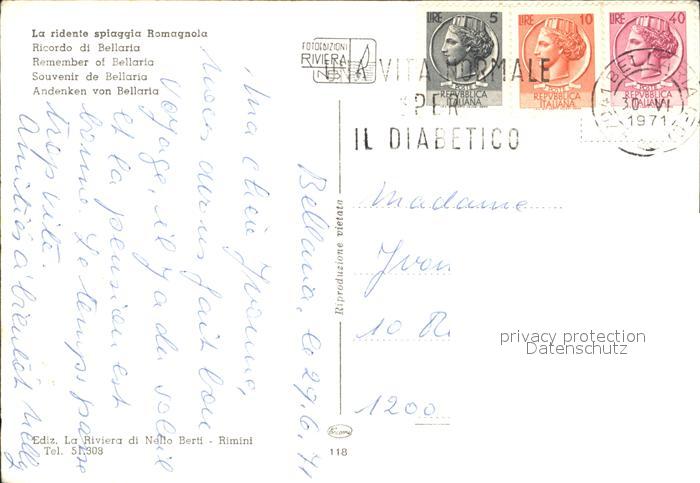 La ridente spiaggia Romagnola
Ricordo di Bellaria
Remember of Bellaria
Souvenir de Bellaria
Andenken von Bellaria
FOTOEDIZIONI
RIVIERA
LIRE 5
POSTE
REPVBBLICA
ITALIANA
LIRE 10
POSTE
REPVBBLICA
ITALIANA
LIRE 40
POSTE
REPVBBLICA
ITALIANA
VITA NORMALE
PER
IL DIABETICO
BELLARIA
30 VI
1971
Bellaria, le 29.6.71
Ma chère Yvonne,
Nous avons fait bon
voyage, il y a du soleil
et la pension est
bonne. Le temps passe
trop vite.
Amitiés à bientôt Nelly
Riproduzione vietata
Madame
Yvon
10 R
1200
privacy protection
Datenschutz
Ediz. La Riviera di Nello Berti - Rimini
Tel. 51.308
118